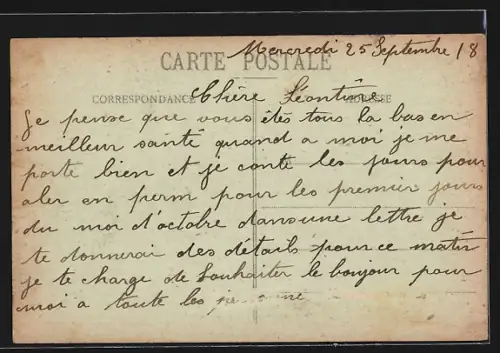 Mercredi 25 Septembre 18
CARTE POSTALE
CORRESPONDANCE
Chère Léontine
Je pense que vous êtes tous la bas en
meilleur santé quand a moi je me
porte bien et je conte les jours pour
aler en perm pour les premier jours
du moi d'octobre dans une lettre je
te donnerai des détails pour ce matin
je te charge de Souhaiter le bonjour pour
moi a toute les